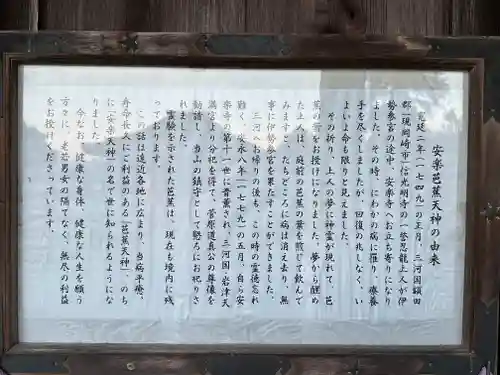 安楽芭蕉天神の由来
寛延二年(一七四九)の正月、三河国額田
郡(現岡崎市)信光明寺の一誉忍龍上人が伊
勢参宮の途中、安楽寺へお立ち寄りになり
ました。その時、にわかの病に罹り、療養
手を尽くしましたが、回復の兆しなく、い
よいよ命も限りと見えました。
その折り、上人の夢に神霊が現れて、芭
蕉の葉をお授けになりました。夢から醒め
た上人は、庭前の芭蕉の葉を煎じて飲んで
みますと、たちどころに病は消え去り、無
事に伊勢参宮を果たすことができました。
三河へお帰りの後も、この時の霊徳忘れ
難く、安永八年(一七七九)五月、自ら安
楽寺の第十一世に晋董され、三河国岩津天
満宮より分祀を得て、菅原道真公の尊像を
勧請し、当山の鎮守として懇ろにお祀りさ
れました。
霊験を示された芭蕉は、現在も境内に残
っております。
この話は遠近各地に広まり、当病平癒、
寿命長久にご利益のある「芭蕉天神」のち
に「安楽天神」の名で世に知られるようにな
りました。
今なお、健康な身体、健康な人生を願う
方々に、老若男女の隔てなく、無尽の利益
をお授けくださっています。